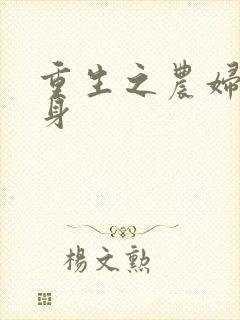 重生之農婦
身
楊文勲